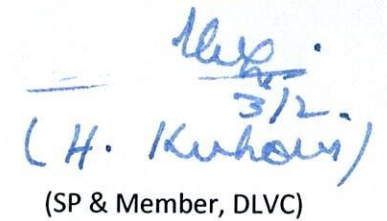 3/2.
(H. Kuhoui)
(SP & Member, DLVC)